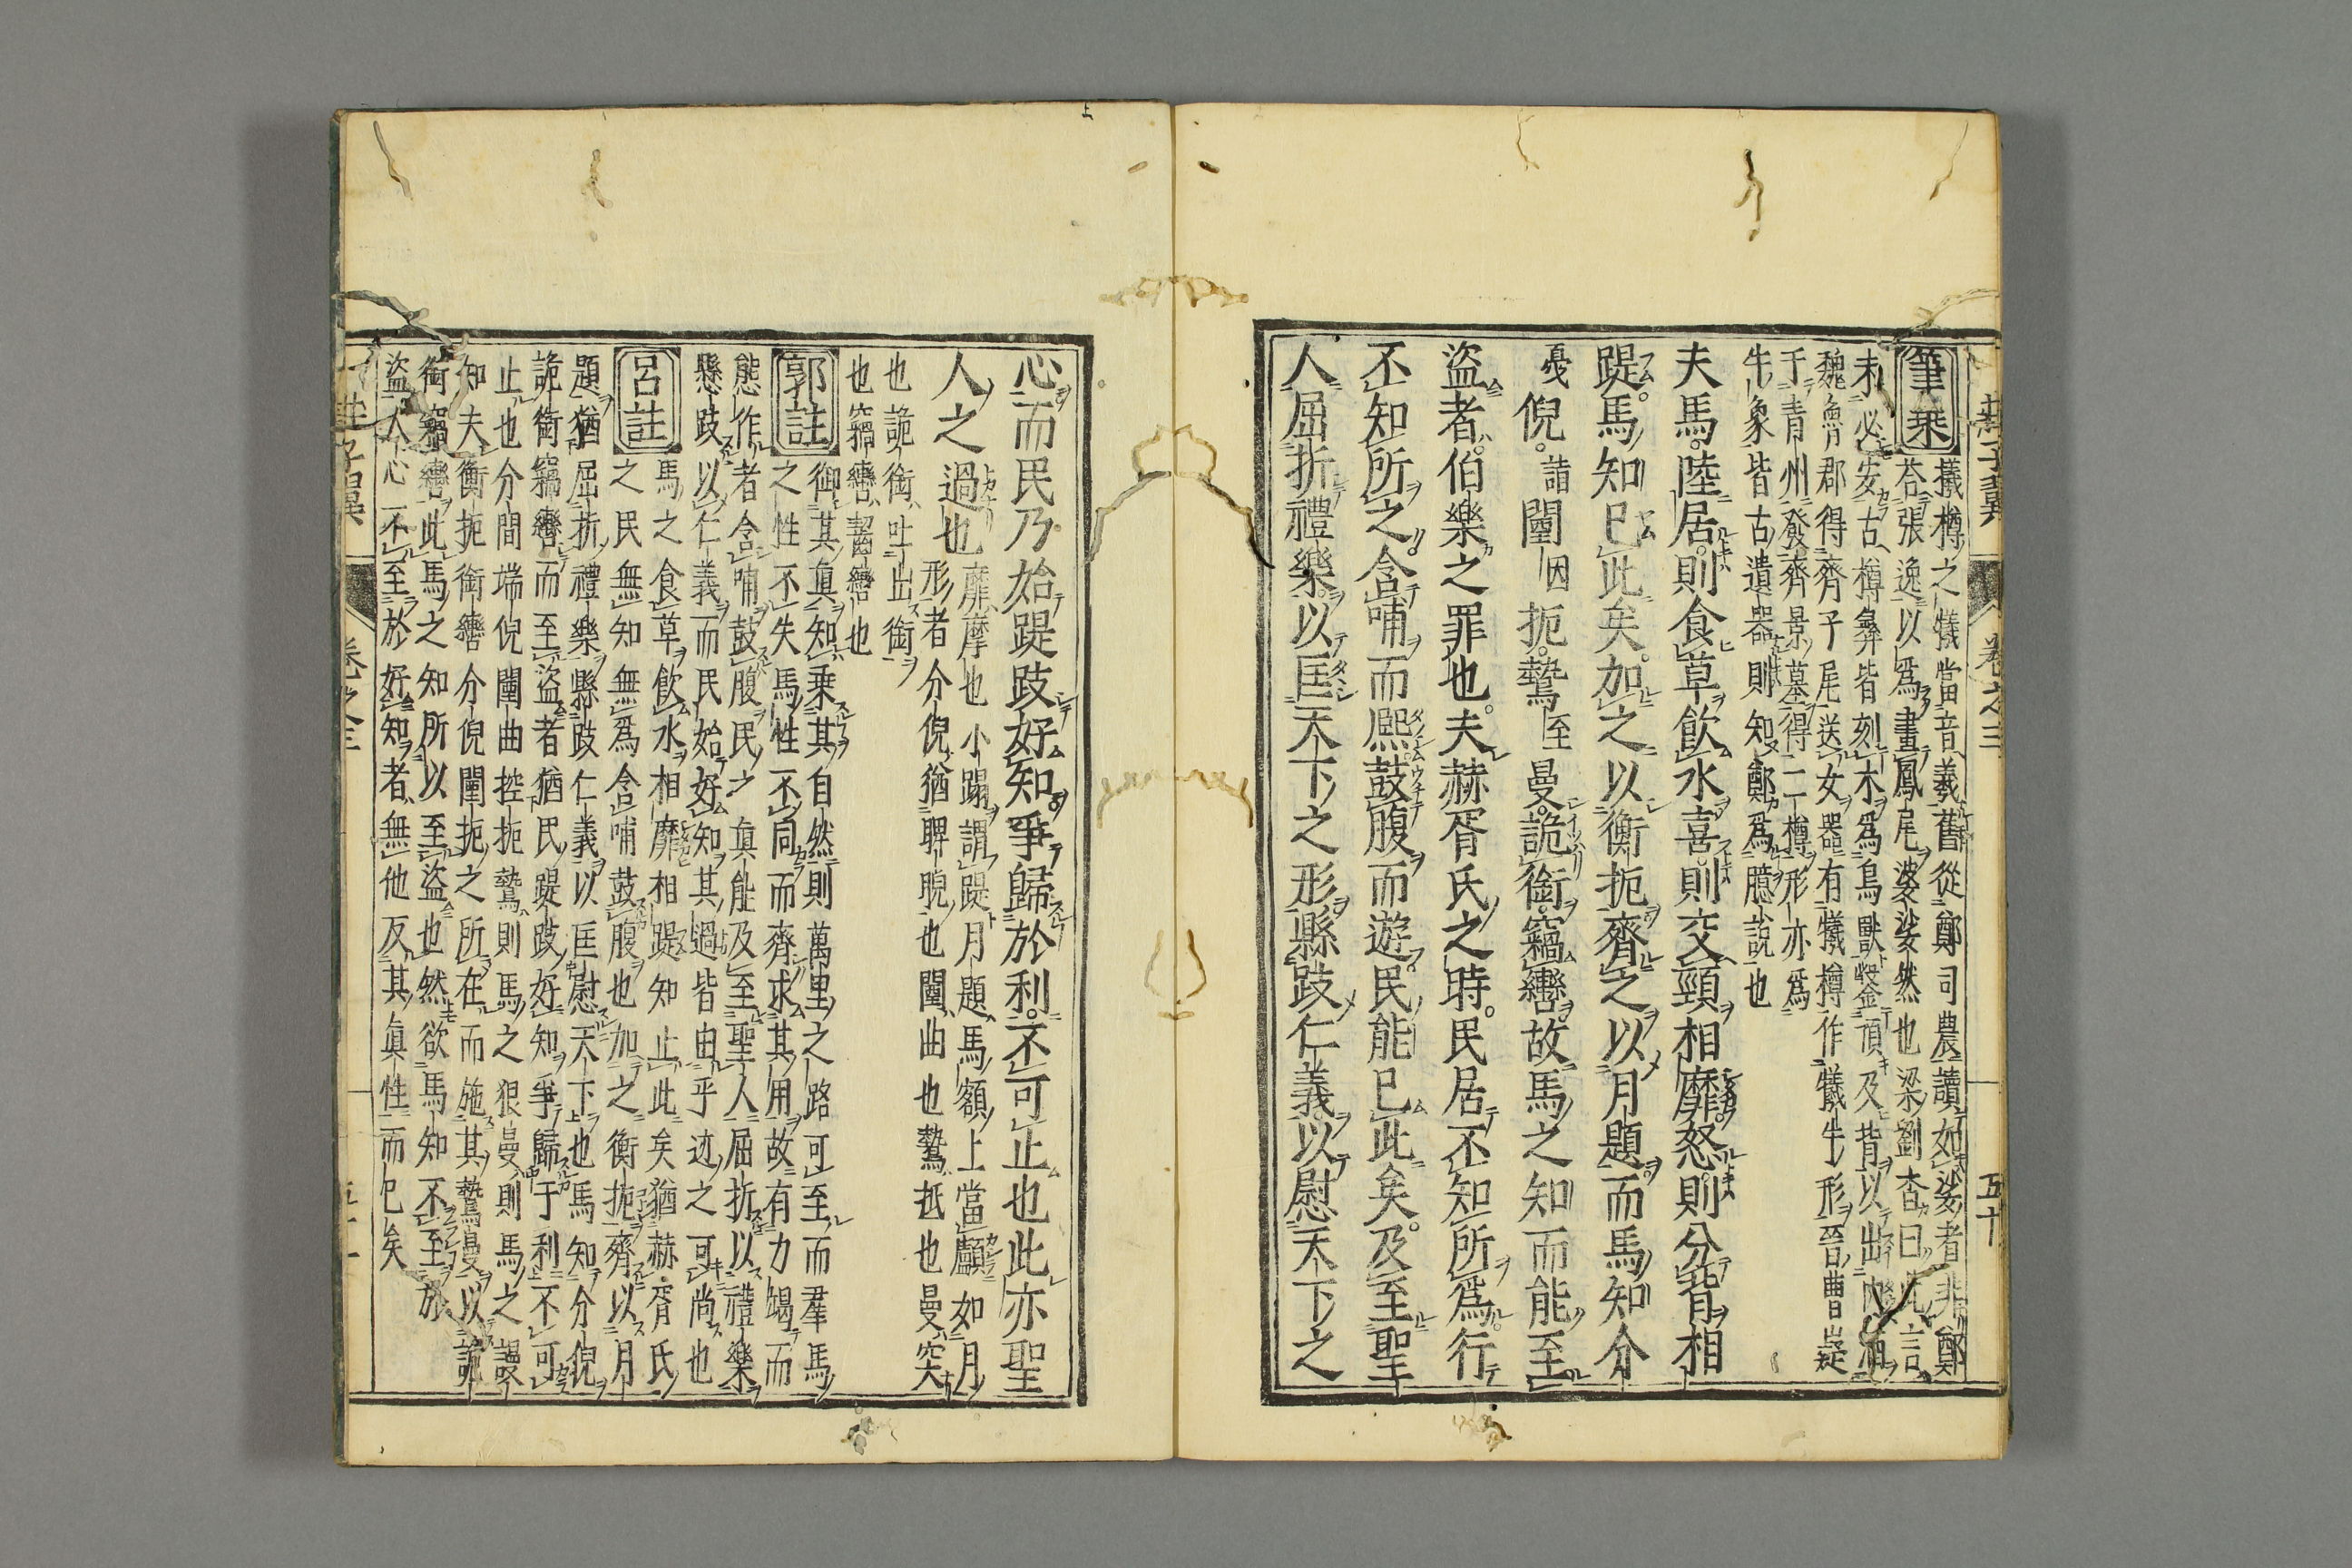 莊子翼 卷之三 五十
筆乘 犧樽之犧當音羲舊從鄭司農讀如娑者非鄭
荅張逸以爲畫鳳尾婆娑然也梁劉杳曰此言
未必安古樽彝皆刻木爲鳥獸鑿頂及背以出內酒
魏魯郡得齊子尾送女器有犧樽作犧牛形晉曹嶷
于青州發齊景墓得二樽形亦爲
牛象皆古遺器則知鄭爲臆說也
夫馬陸居則食草飲水喜則交頸相靡怒則分背相
踶馬知已此矣加之以衡扼齊之以月題而馬知介
戞倪詣闉因扼鷙至曼詭銜竊轡故馬之知而能至
盜者伯樂之罪也夫赫胥氏之時民居不知所爲行
不知所之含哺而熙鼓腹而遊民能已此矣及至聖
人屈折禮樂以匡天下之形縣跂仁義以慰天下之
心而民乃始踶跂好知爭歸於利不可止也此亦聖
人之過也 靡摩也小蹋謂踶月題馬額上當顱如月
形者分倪猶睥睨也闉曲也鷙抵也曼突
也詭銜吐出銜
也竊轡齧轡也
郭註 御其眞知乘其自然則萬里之路可至而羣馬
之性不失馬性不同而齊求其用故有力竭而
態作者含哺鼓腹民之眞能及至聖人屈折以禮樂
懸跂以仁義而民始好知其過皆由乎迹之可尚也
呂註 馬之食草飲水相靡相踶知止此矣猶赫胥氏
之民無知無爲含哺鼓腹也加之衡扼齊以月
題猶屈折禮樂縣跂仁義以匡慰天下也馬知分倪
詭銜竊轡而至盜者猶民踶跂好知爭歸于利不可
止也分間端倪闉曲控扼鷙則馬之狠曼則馬之謾
知夫衡扼銜轡分倪闉扼之所在而施其鷙曼以詭
銜竊轡此馬之知所以至盜也然欲馬知不至於
盜人心不至於好知者無他反其眞性而已矣
莊子翼 卷之三